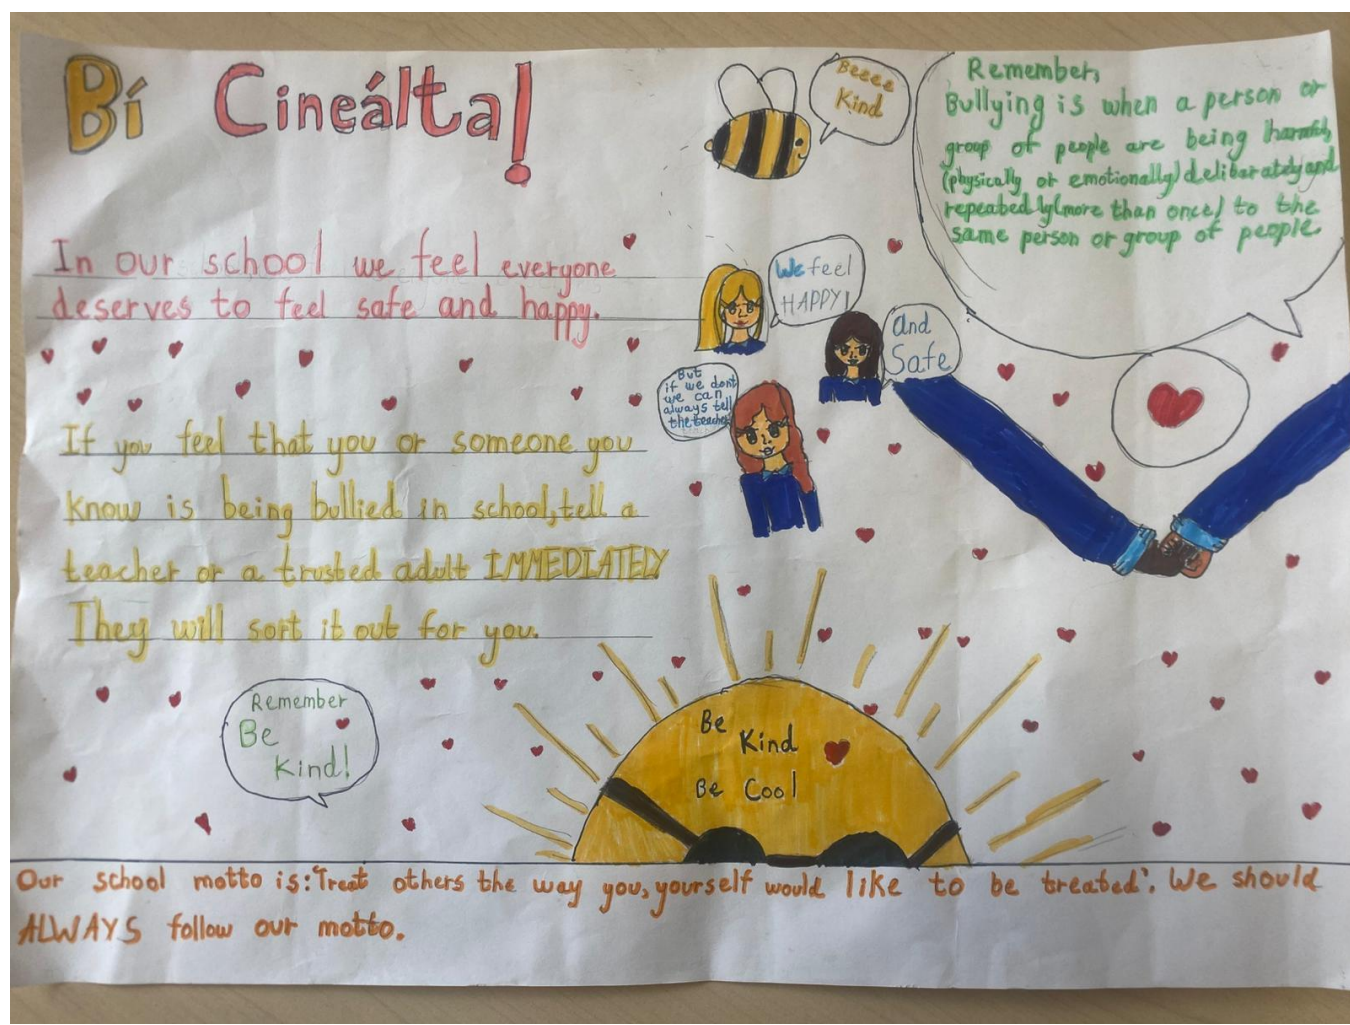 Bí Cineálta!
Beeee
Kind
Remember,
Bullying is when a person or
group of people are being harmful,
(physically or emotionally) deliberately and
repeatedly (more than once) to the
same person or group of people.
In our school we feel everyone
deserves to feel safe and happy.
We feel
HAPPY!
And
Safe
But
if we dont
we can
always tell
the teacher
If you feel that you or someone you
know is being bullied in school, tell a
teacher or a trusted adult IMMEDIATELY
They will sort it out for you.
Remember
Be
Kind!
Be
Kind
Be Cool
Our school motto is: 'Treat others the way you, yourself would like to be treated'. We should
ALWAYS follow our motto.